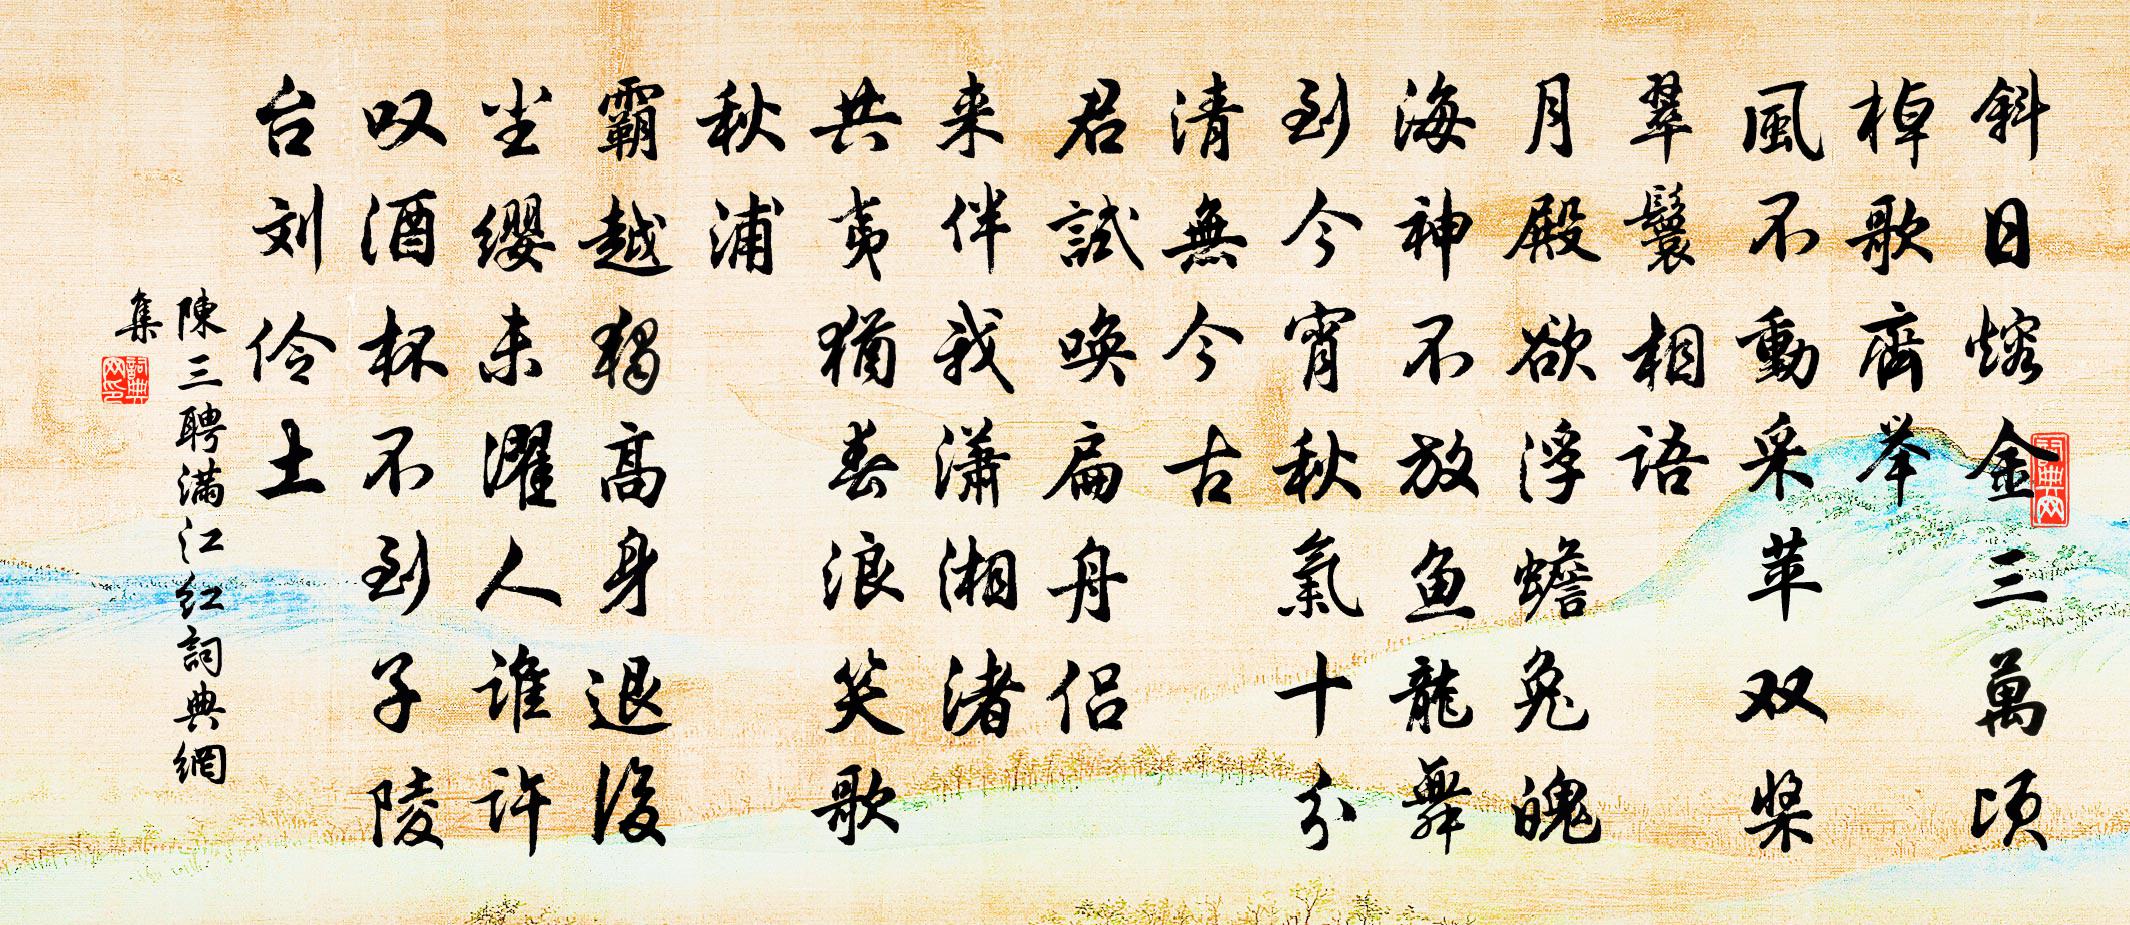 斜日熔金三萬頃
棹歌齊举
風不動采苹双桨
翠鬟相语
月殿欲浮蟾兔魄
海神不放鱼龍舞
到今宵秋氣十分
清無今古
君試唤扁舟侣
来伴我潇湘渚
共夷猶春浪笑歌
秋浦
霸越獨高身退後
尘缨未濯人谁许
叹酒杯不到子陵
台刘伶土
陳三聘满江红詞典網
集
詞典网印
詞典网